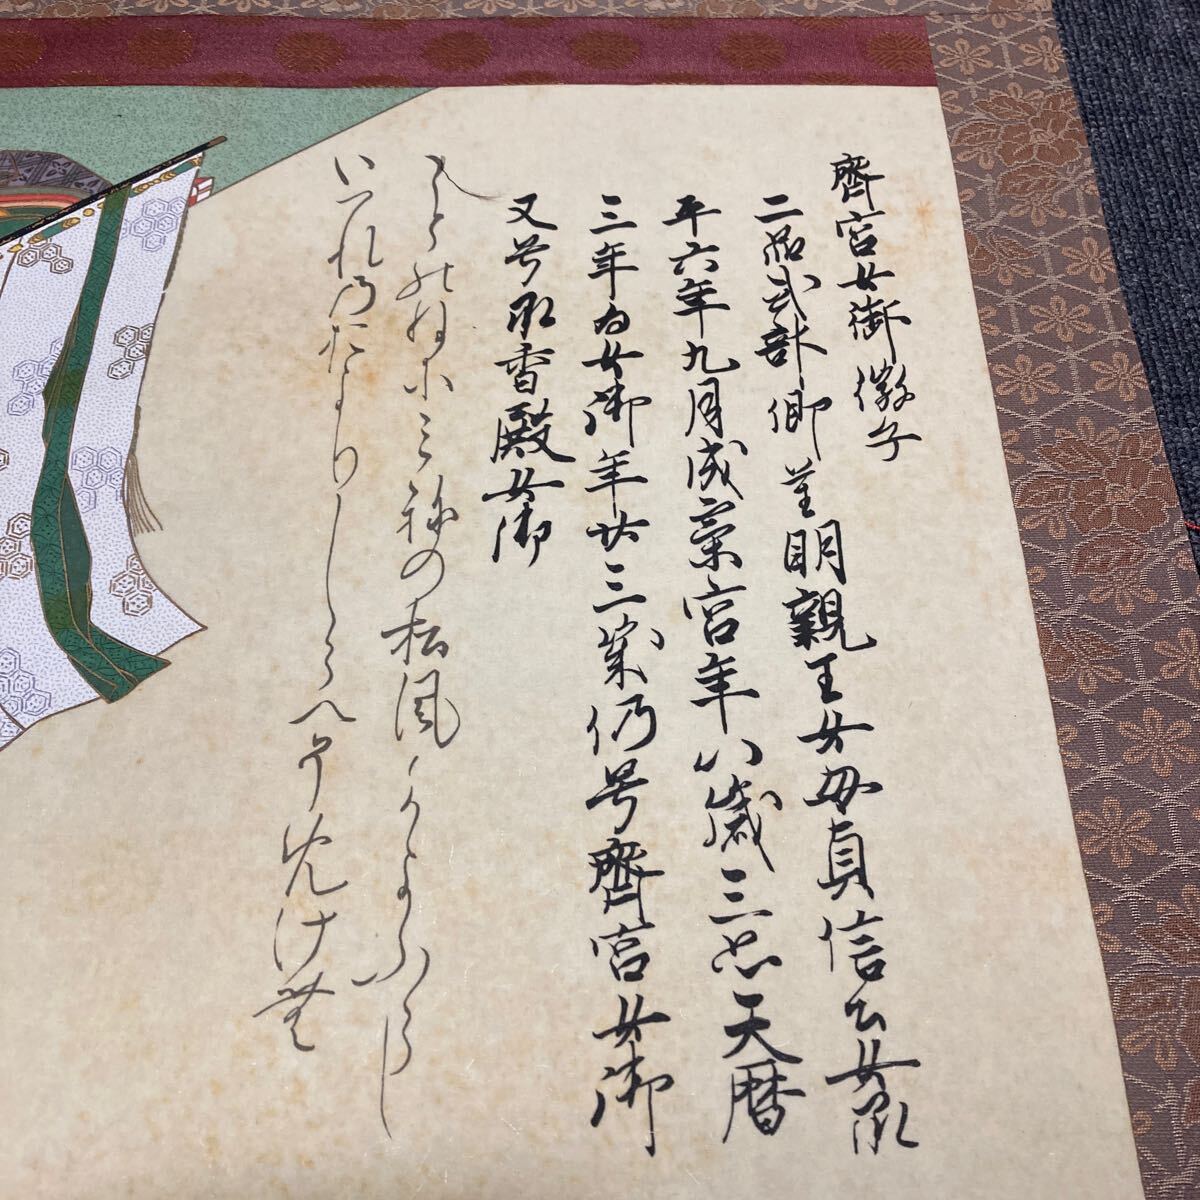 齊宮女御 徽子
二品式部卿重明親王女母貞信公女承
平六年九月成斎宮年八歳三品天暦
三年為女御年廿三歳仍号齊宮女御
又号承香殿女御
ことのねにみねの松風かよふらし
いつれのおよりしらへそめけむ